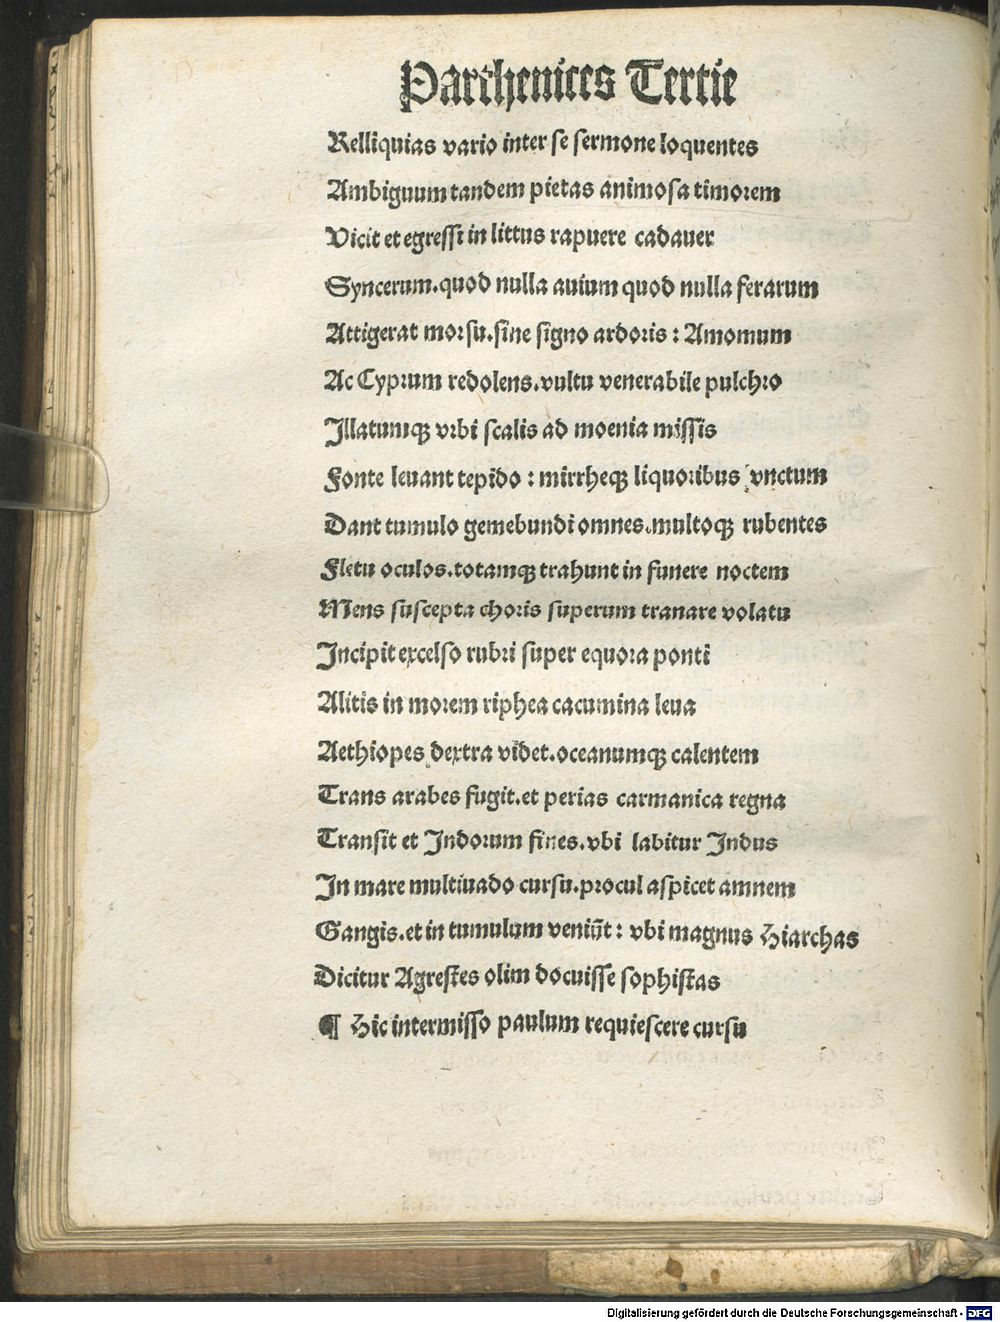 Parthenices Tertie
Relliquias vario inter se sermone loquentes
Ambiguum tandem pietas animosa timorem
Vicit et egressi in littus rapuere cadauer
Syncerum.quod nulla auium quod nulla ferarum
Attigerat morsu.sine signo ardoris : Amomum
Ac Cyprum redolens.vultu venerabile pulchro
Illatumqꝫ vrbi scalis ad moenia missis
Fonte leuant tepido : mirrheqꝫ liquoribus vnctum
Dant tumulo gemebundi omnes.multoqꝫ rubentes
Fletu oculos.totamqꝫ trahunt in funere noctem
Mens suscepta choris superum tranare volatu
Incipit excelso rubri super equora ponti
Alitis in morem riphea cacumina leua
Aethiopes dextra videt.oceanumqꝫ calentem
Trans arabes fugit.et perias carmanica regna
Transit et Indorum fines.vbi labitur Indus
In mare multiuado cursu.procul aspicet amnem
Gangis.et in tumulum veniūt : vbi magnus Hiarchas
Dicitur Agrestes olim docuisse sophistas
¶ Hic intermisso paulum requiescere cursu
Digitalisierung gefördert durch die Deutsche Forschungsgemeinschaft - DFG